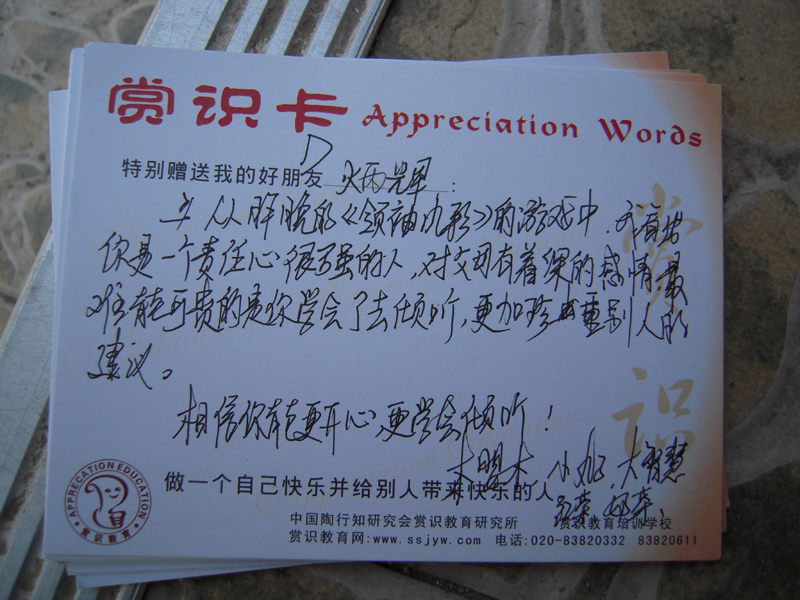 赏识卡 Appreciation Words
特别赠送我的好朋友 炳辉：
从昨晚的《领袖风彩》的游戏中，
你是一个责任心很强的人，对公司有着深的感情，最
难能可贵的是你学会了去倾听，更加珍重别人的
建议。
相信你能更开心，更学会倾听！
小 大智慧
做一个自己快乐并给别人带来快乐的人
中国陶行知研究会赏识教育研究所 赏识教育培训学校
赏识教育网:www.ssjyw.com 电话:020-83820332 83820611
APPRECATION EDUCATION
赏识教育
赏识